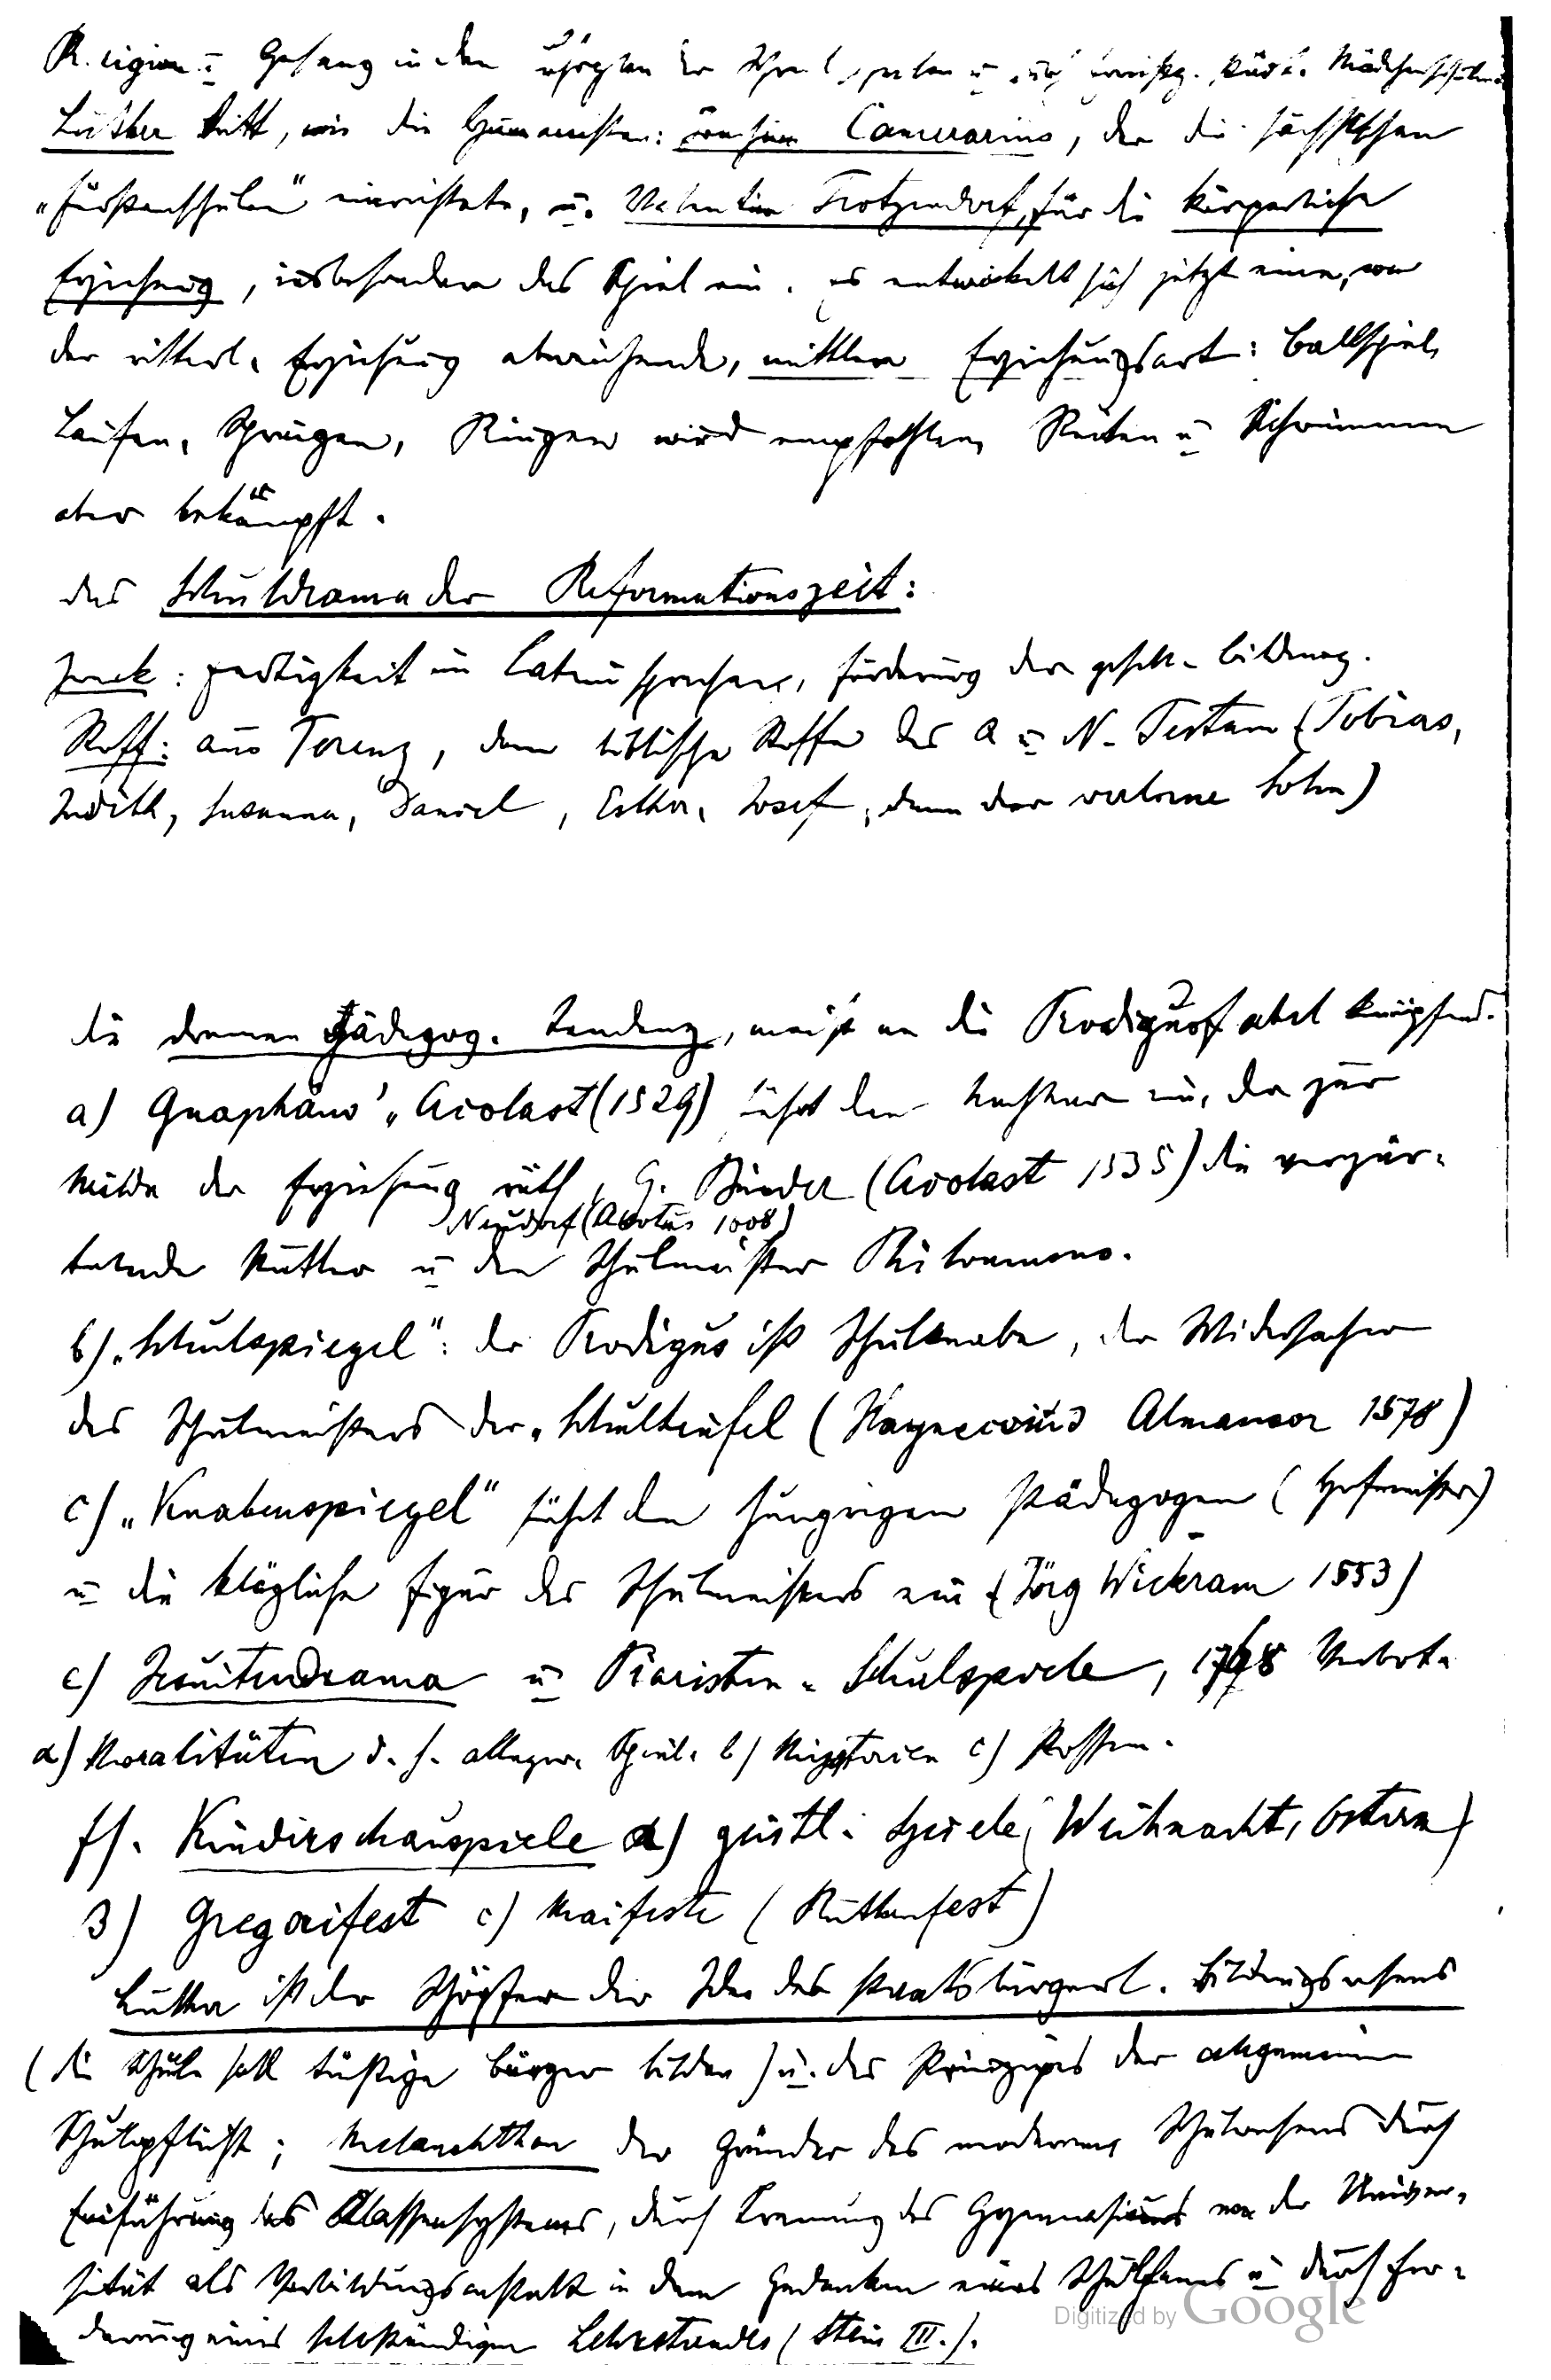 Religion u Gesang in den
Luther tritt, wie die Humanisten: Camerarius, der die sächsischen
„Fürstenschulen" einrichtete, u. Valentin Trotzendorf, für die körperliche
Erziehung, insbesondere das Spiel ein. es entwickelt sich jetzt eine, von
der ritterl. Erziehung abweichende, mittlere Erziehungsart: Ballspiel,
Laufen, Springen, Ringen wird empfohlen, Reiten u Schwimmen
aber bekämpft.
das Schuldrama der Reformationszeit:
Zweck: Fertigkeit im Lateinsprechen, Förderung der gesell. Bildung.
Stoff: aus Terenz, dann biblische Stoffe des A u N. Testam (Tobias,
Judith, Susanna, Daniel, Esther, Josef, dann der verlorne Sohn)
die dramen pädagog. Tendenz, meist an die Prodigusfabel knüpfend.
a) Gnaphäus' „Acolast (1529) führt den ein, der zur
Milde der Erziehung räth, G. Binder (Acolast 1535) die verzär-
Neudorf (Asotus 1608)
telnde Mutter u den Schulmeister
b) „Schulspiegel": der Prodigus ist Schulknabe, der Widersacher
des Schulmeisters der „Schulteufel (Hayneccius Almansor 1578)
c) „Knabenspiegel" führt den hungrigen Pädagogen (Hofmeister)
u die klägliche Figur des Schulmeisters ein (Jörg Wickram 1553)
e) Jesuitendrama u Piaristen-Schulspiele, 1768 Verbot.
a) Moralitäten d. h. allegor. Spiel. b) Mysterien c) Possen.
f). Kinderschauspiele a) geistl. Spiele (Weihnacht, Ostern)
3) Gregorifest c) Maifeste (Ruthenfest)
Luther ist der Schöpfer der Idee des staatsbürgerl. Bildungswesens
(die Schule soll tüchtige Bürger bilden) u. des Prinzipes der allgemeinen
Schulpflicht; Melanchthon der Gründer des modernen Schulwesens durch
Einführung des Klassensystems, durch Trennung des Gymnasiums von der Univer-
sität als Vorbildungsanstalt in dem Gedanken eines Schulplanes u durch For-
derung eines selbständigen Lehrstandes (Stein III.).
Digitized by Google